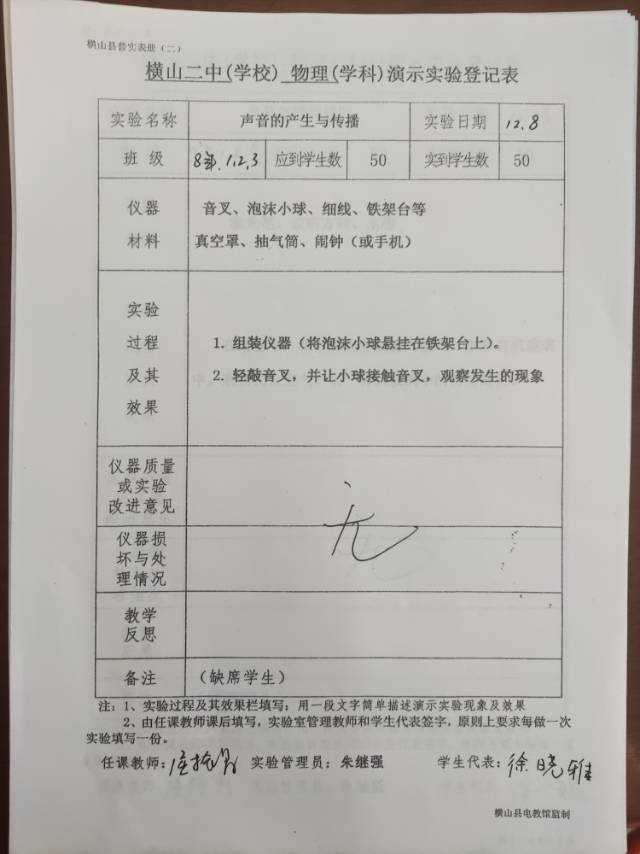 横山县普实表册（二）
横山二中(学校) 物理(学科)演示实验登记表
实验名称 声音的产生与传播 实验日期 12.8
班 级 8年.1,2,3 应到学生数 50 实到学生数 50
仪器 音叉、泡沫小球、细线、铁架台等
材料 真空罩、抽气筒、闹钟（或手机）
实验
过程 1. 组装仪器（将泡沫小球悬挂在铁架台上）。
及其 2. 轻敲音叉，并让小球接触音叉，观察发生的现象
效果
仪器质量
或实验
改进意见
无
仪器损
坏与处
理情况
教学
反思
备注 （缺席学生）
注：1、实验过程及其效果栏填写：用一段文字简单描述演示实验现象及效果
2、由任课教师课后填写，实验室管理教师和学生代表签字，原则上要求每做一次
实验填写一份。
任课教师: 实验管理员：朱继强 学生代表: 徐晓雅
横山县电教馆监制